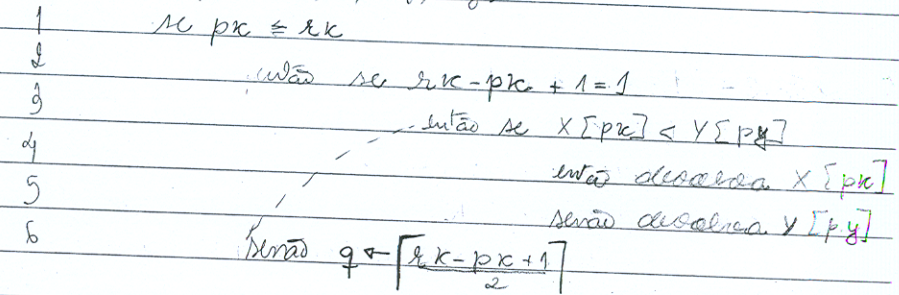 1 se px ≤ rx
2 então se rx-px+1=1
3 então se X[px] < Y[py]
4 então devolva X[px]
5 senão devolva Y[py]
6 senão q ← ⌈(rx-px+1)/2⌉